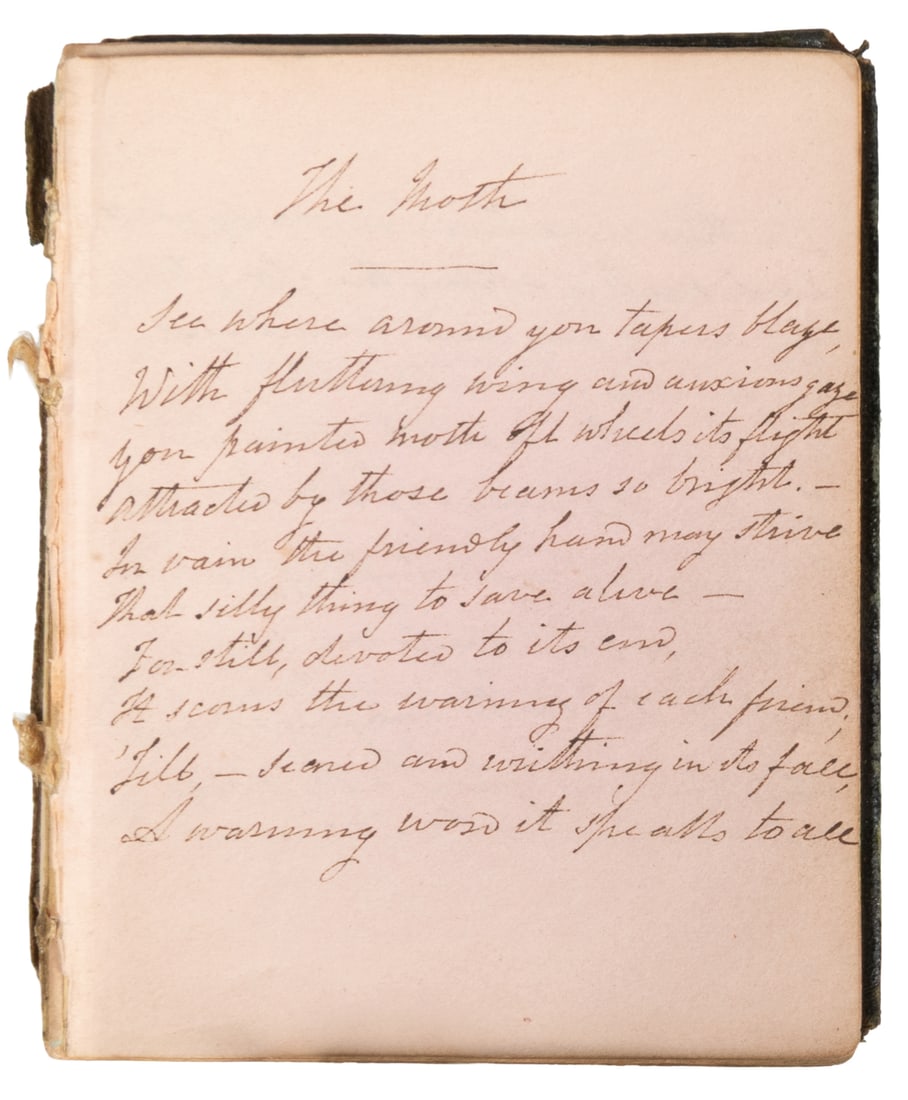 The Moth
See where around yon tapers blaze,
With fluttering wing and anxious gaze
yon painted moth oft wheels its flight
Attracted by those beams so bright. —
In vain the friendly hand may strive
That silly thing to save alive —
For still, devoted to its end,
It scorns the warning of each friend,
'Till, — seared and writhing in its fall,
A warning word it speaks to all